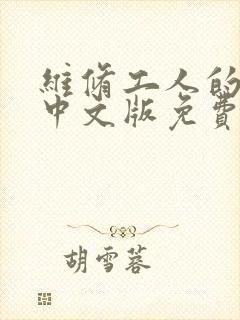 維脩工人的
中文版免費
胡雪蓉